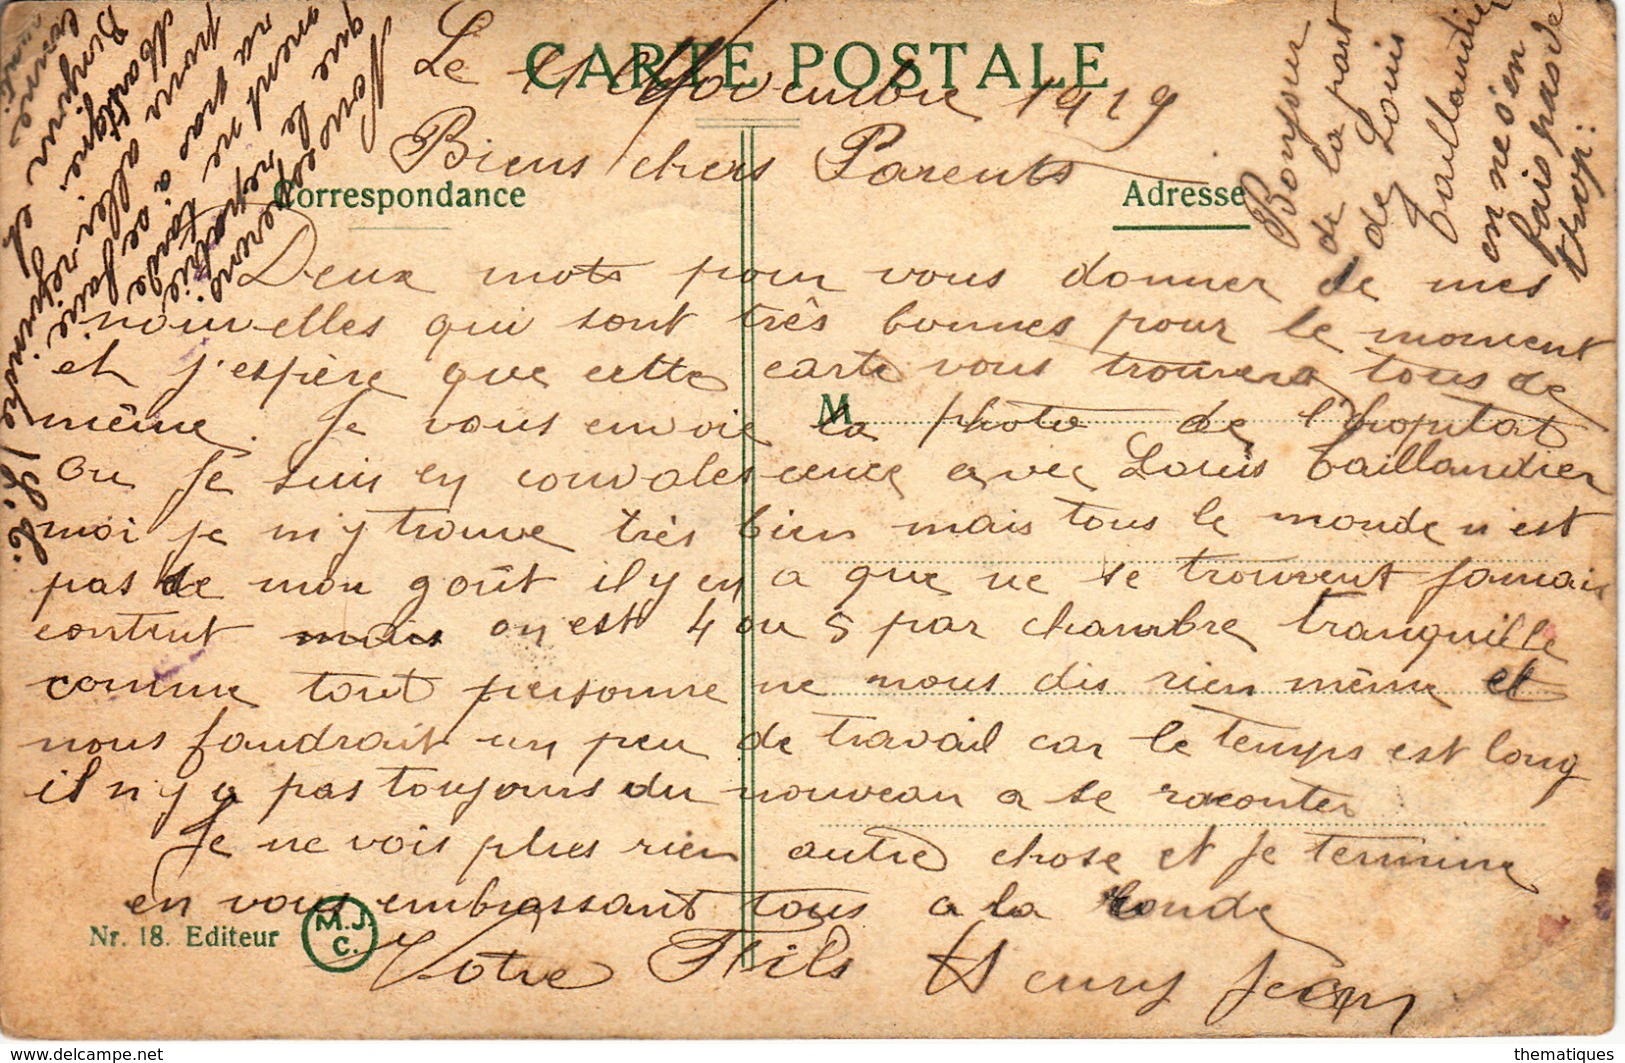 CARTE POSTALE
Le 11 Novembre 1919
Biens chers Parents
Correspondance
Adresse
Deux mots pour vous donner de mes
nouvelles qui sont très bonnes pour le moment
et j'espère que cette carte vous trouvera tous de
M
même. Je vous envoie la photo de l'hopital
ou je suis en convalescence avec Louis Taillandier
moi je m'y trouve très bien mais tous le monde n'est
pas de mon goût il y en a que ne se trouvent jamais
content mais on est 4 ou 5 par chambre tranquille
comme tout personne ne nous dis rien même et
nous faudrait un peu de travail car le temps est long
il n'y a pas toujours du nouveau a se raconter
Je ne vois plus rien autre chose et je termine
en vous embrassant tous a la ronde
Votre Fils Henry Jean
Nr. 18. Editeur
M.J.
C.
Bonjour
de la part
de Louis
Taillandier
on ne s'en
fais pas de
trop:
Nous espérons
que le rapatrie
ment ne tarde
ra pas à se faire
pour aller rejoindre
Bonjour et